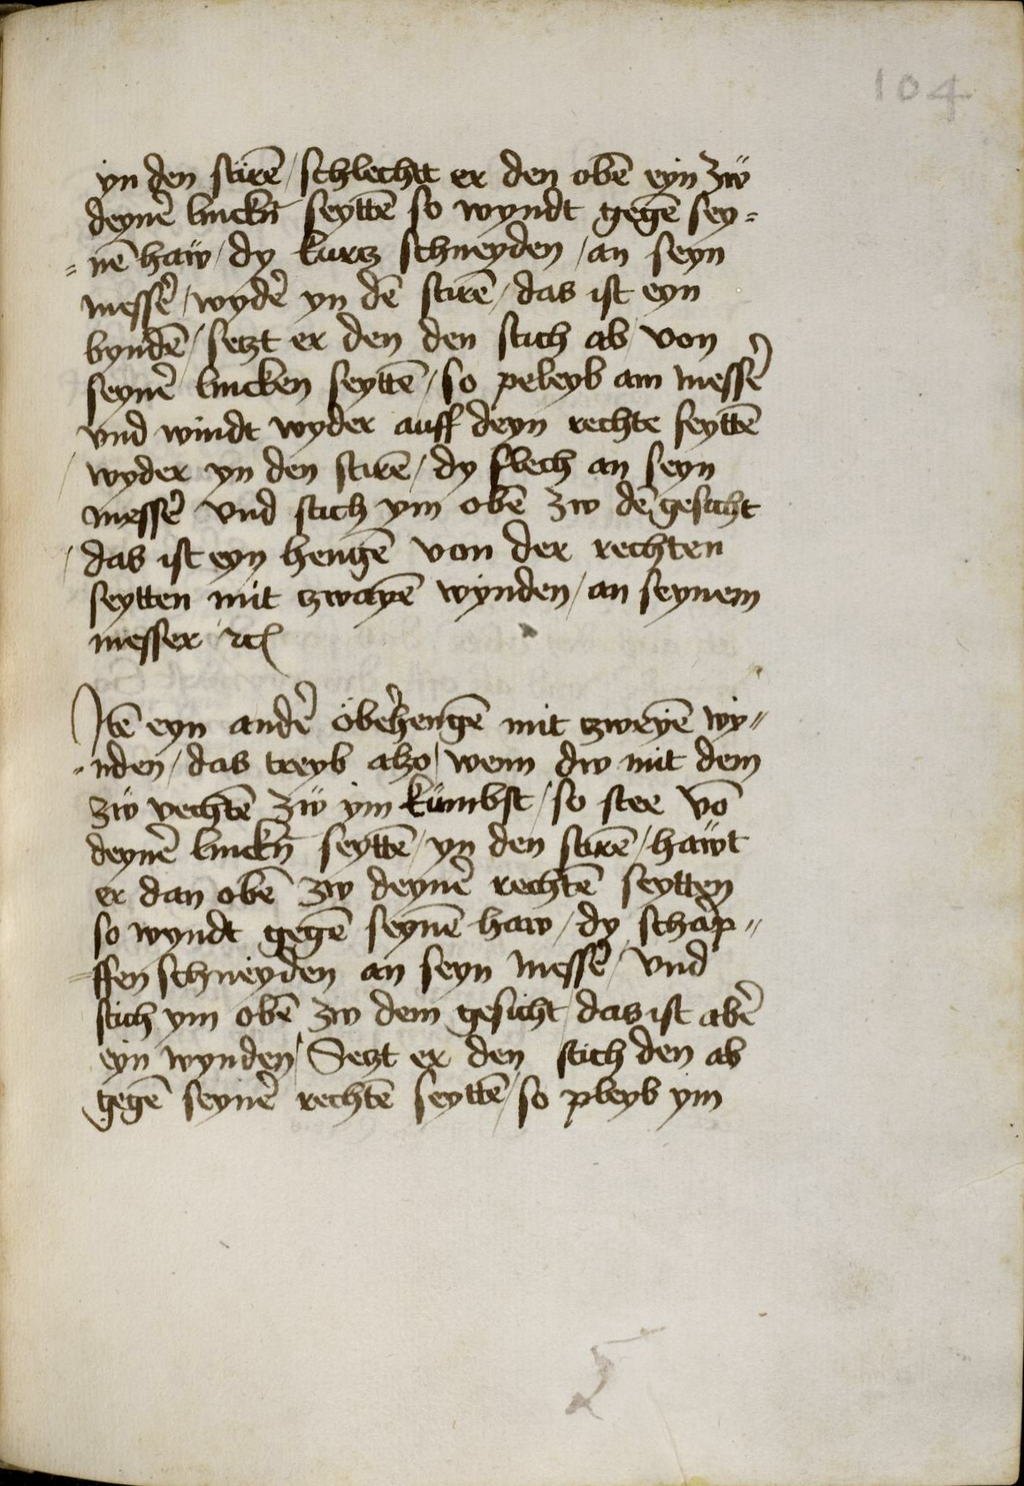 104
yn den stirē / schlechtt er den obē eyn zw̋
deynē linckn̄ seyttē so wyndt gegē sey=
=nē haw̋ / dy kurtz schneyden / an seyn
messē / wydē yn dē stirē / das ist eyn
byndē / setzt er den den stich ab / von
seynē lincken seyttē / so peleyb am messē
vnd windt wyder auff deyn rechte seyttē
/ wyder yn den stirē / dy flech an seyn
messē vnd stich ym obē zw dē gesicht
/ das ist eyn hengē von der rechten
seytten mit zwayē wynden / an seynem
messer ꝛc
Itē eyn andē öbēhengē mit zweyē wy=
=nden / das treyb alzo / wenn dw mit dem
zw̋ vechtē zw̋ ym kümbst / so stee vō
deynē linckn̄ seyttē / yn den stirē / haw̋t
er dan obē zw deynē rechtē seytten
so wyndt gegē seynē haw / dy scharp=
=ffen schneyden an seyn messē / vnd
stich ym obē zw dem gesicht / das ist abē
eyn wynden / Setzt er den stich den ab
gegē seynē rechtē seyttē / so pleyb ym